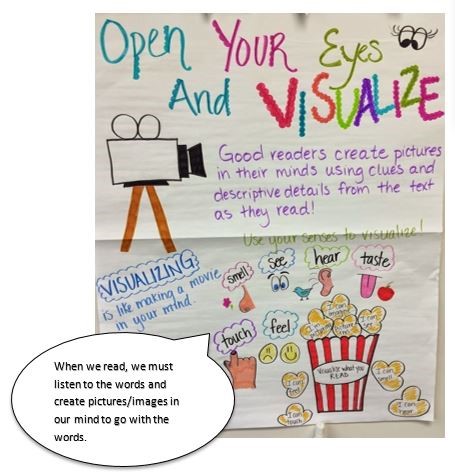 Open Your Eyes
And VISUALIZE
Good readers create pictures
in their minds using clues and
descriptive details from the text
as they read!
Use your senses to visualize!
VISUALIZING
is like making a movie
in your mind.
smell
see
hear
taste
touch
feel
I can
imagine
I can
see
Visualize what you
READ
I can
feel
I can
smell
I can
touch
I can
hear
When we read, we must
listen to the words and
create pictures/images in
our mind to go with the
words.